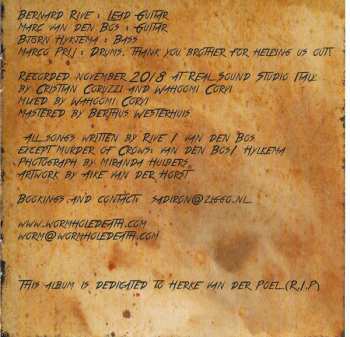 Bernard Rive : Lead Guitar
Marc van den Bos : Guitar
Bjorn Hylkema : Bass
Marco Prij : Drums. Thank you brother for helping us out.
Recorded november 2018 at Real Sound Studio Italy
by Cristian Coruzzi and Wahoomi Corvi
Mixed by Wahoomi Corvi
Mastered by Berthus Westerhuis
All songs written by Rive / van den Bos
except Murder of Crows: van den Bos/ Hylkema
Photograph by Miranda Huibers
Artwork by Aike van der Horst
Bookings and contact: sadiron@ziggo.nl
www.wormholedeath.com
worm@wormholedeath.com
This album is dedicated to Herke van der Poel (R.I.P)